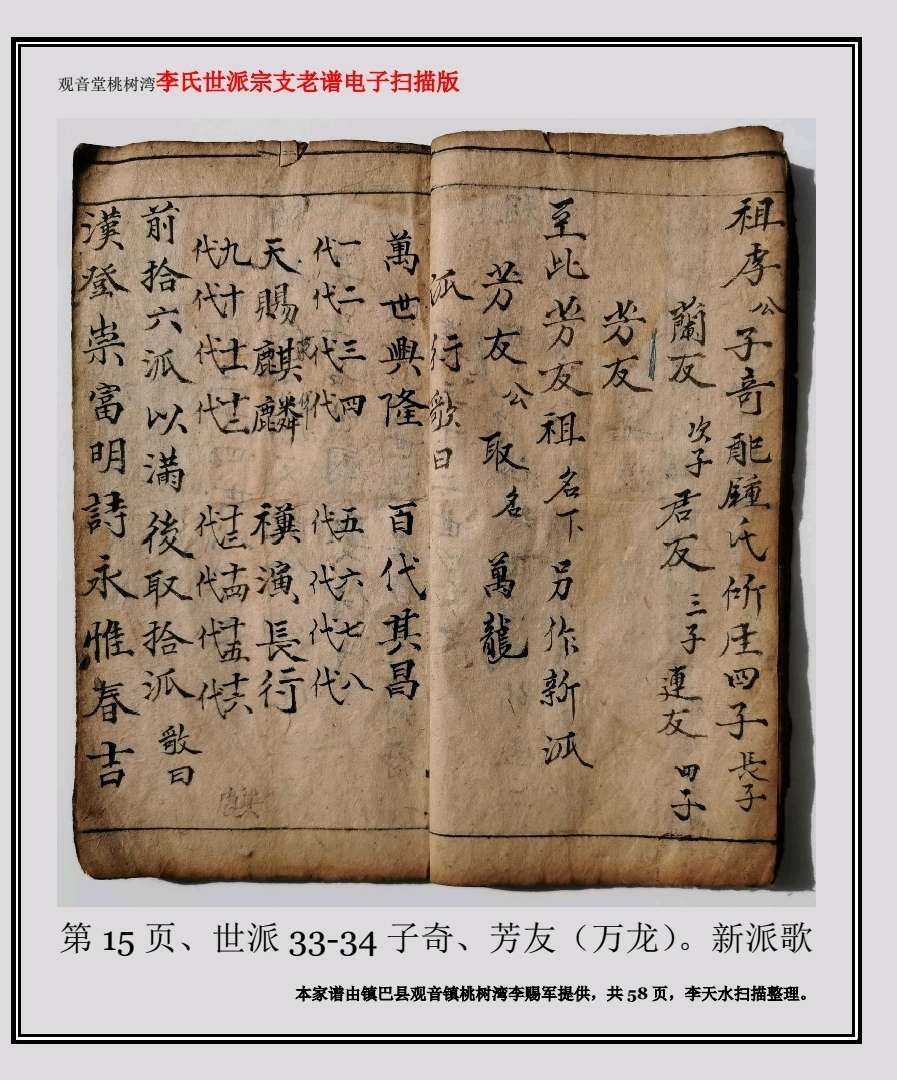 观音堂桃树湾李氏世派宗支老谱电子扫描版
祖李公子奇配鍾氏所庄四子長子
蘭友 次子君友 三子連友 四子
芳友
至此芳友祖名下另作新派
芳友公取名萬龍
派行歌曰
萬世興隆 百代其昌
一代二代三代四代 五代六代七代八代
天賜麒麟 演長行
九代十代十一代十二代 十三代十四代十五代十六代
前拾六派以滿後取拾派歌曰
漢登崇富明詩永惟春吉
第 15 页、世派 33-34 子奇、芳友（万龙）。新派歌
本家谱由镇巴县观音镇桃树湾李赐军提供，共 58 页，李天水扫描整理。